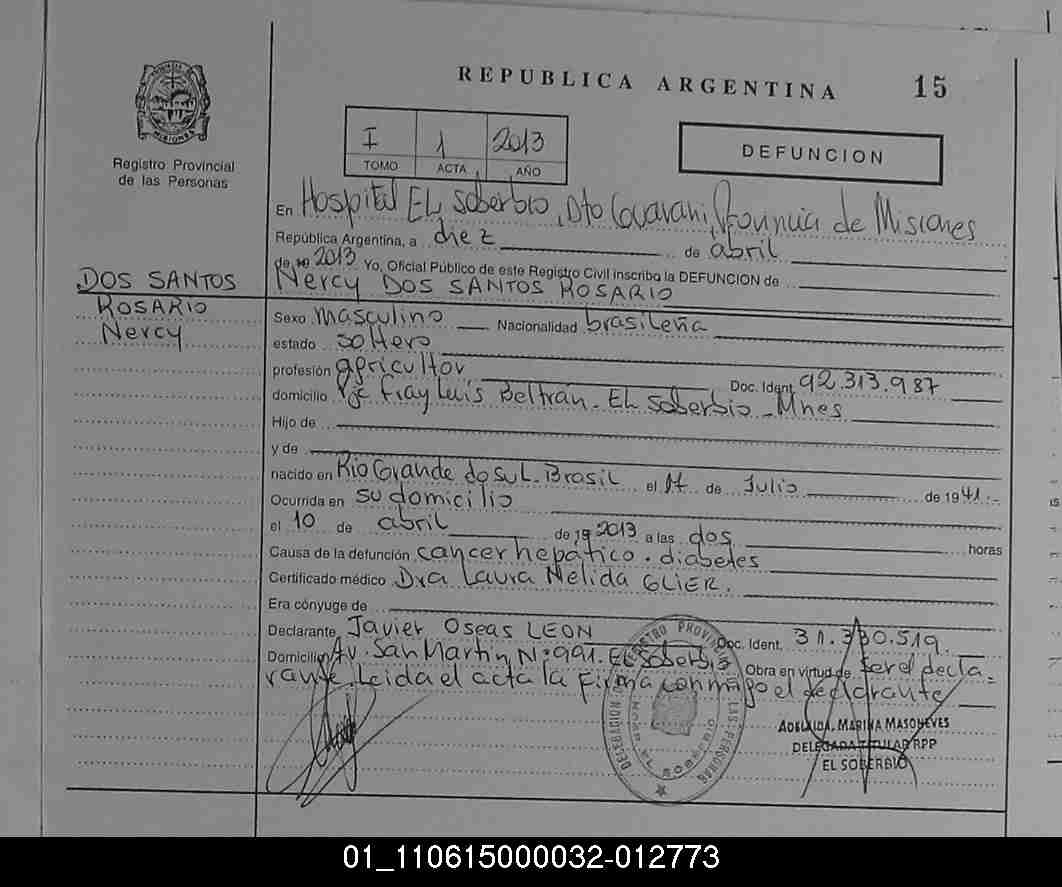 REPUBLICA ARGENTINA 15
PROVINCIA DE MISIONES
Registro Provincial
de las Personas
I 1 2013
TOMO ACTA AÑO
DEFUNCION
En Hospital EL Soberbio, Dto Guarani, Provincia de Misiones
República Argentina, a diez de abril
de 2013 Yo, Oficial Público de este Registro Civil inscribo la DEFUNCION de
DOS SANTOS
ROSARIO
Nercy
Nercy DOS SANTOS ROSARIO
Sexo masculino Nacionalidad brasileña
estado soltero
profesión agricultor Doc. Ident. 92.313.987
domicilio Pje Fray Luis Beltrán. EL Soberbio - Mnes
Hijo de
y de
nacido en Rio Grande do SuL. Brasil el de Julio de 1941.-
Ocurrida en su domicilio
el 10 de abril de 19 2013 a las dos horas
Causa de la defunción cancer hepático. diabetes
Certificado médico Dra Laura Nelida GLIER.
Era cónyuge de
Declarante Javier Oseas LEON Doc. Ident. 31.330.519.
Domicilio Av. San Martin Nº 991. EL Soberbio Obra en virtud de ser el decla-
rante. Leida el acta la firma conmigo el declarante
ADELAIDA MARINA MASCHEVES
DELEGADA TITULAR RPP
EL SOBERBIO
01_110615000032-012773